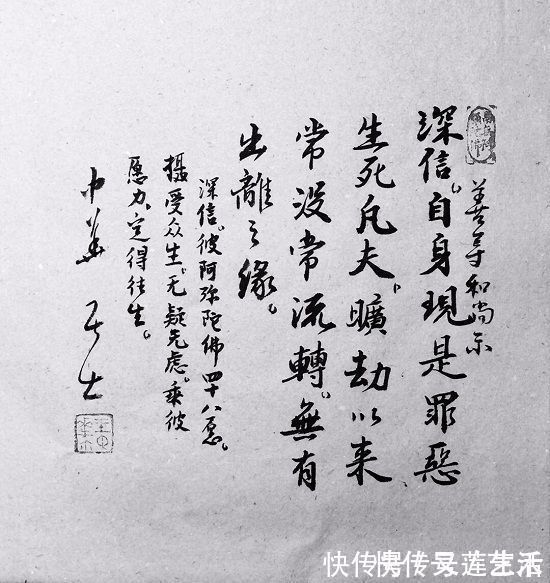 善导和尚示
深信。自身現是罪惡
生死凡夫。曠劫以来
常没常流轉。無有
出離之缘。
深信。彼阿弥陀佛四十八愿。
攝受众生。无疑无虑。乘彼
愿力、定得往生。
中 居士
快传